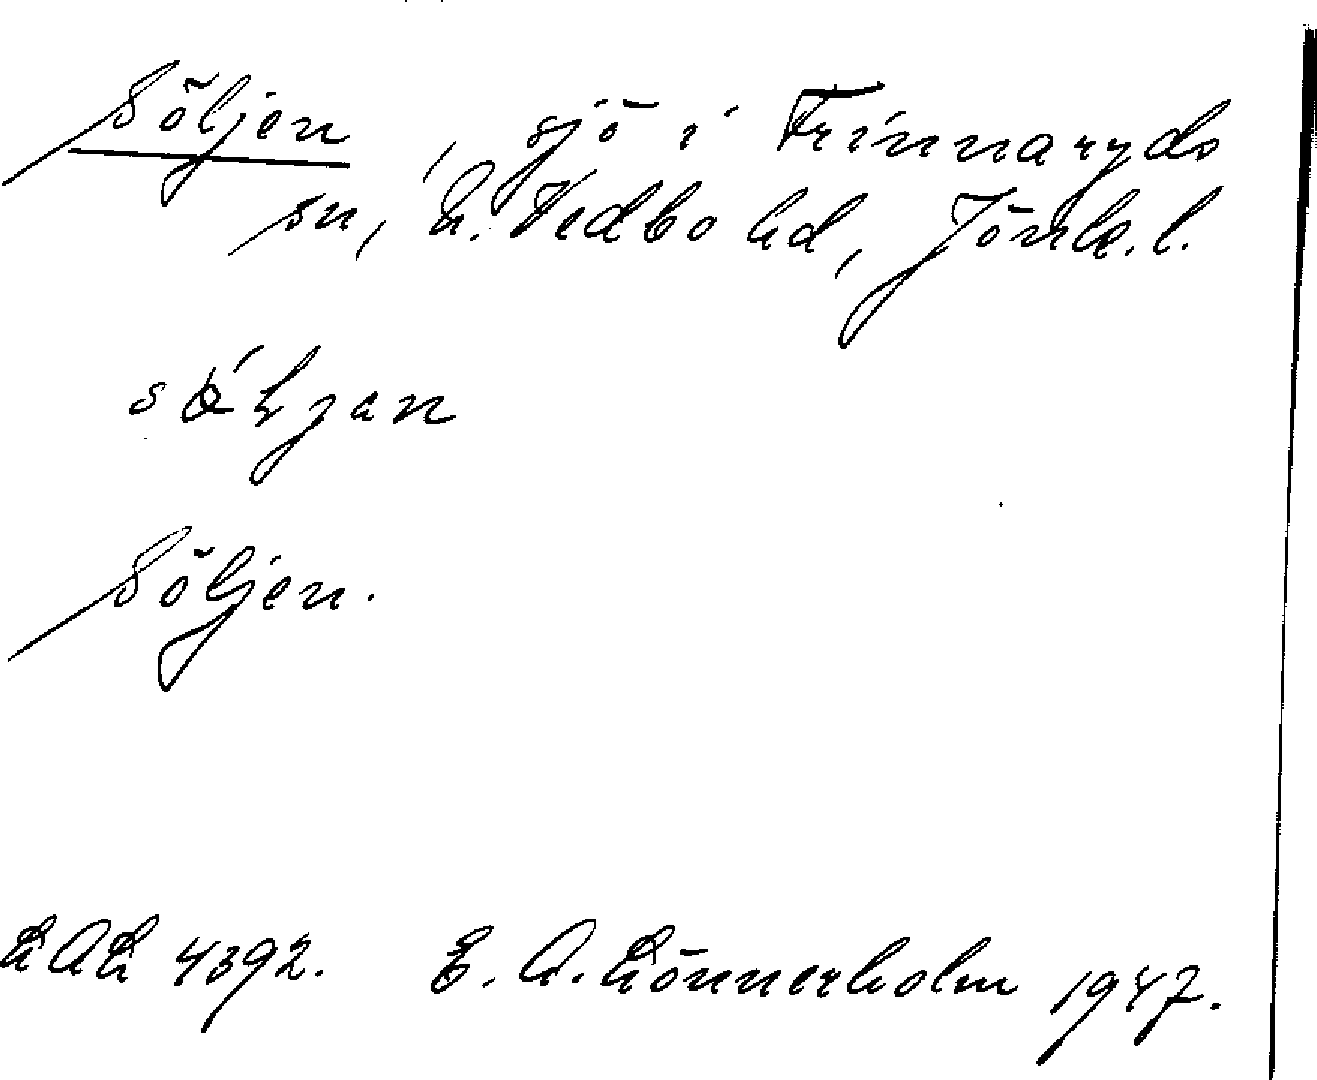 Söljen, sjö i Frinnaryds
sn, N. Vedbo hd, Jönk. l.
Söljen.
LAL 4392. E. A. Lönnerholm 1947.